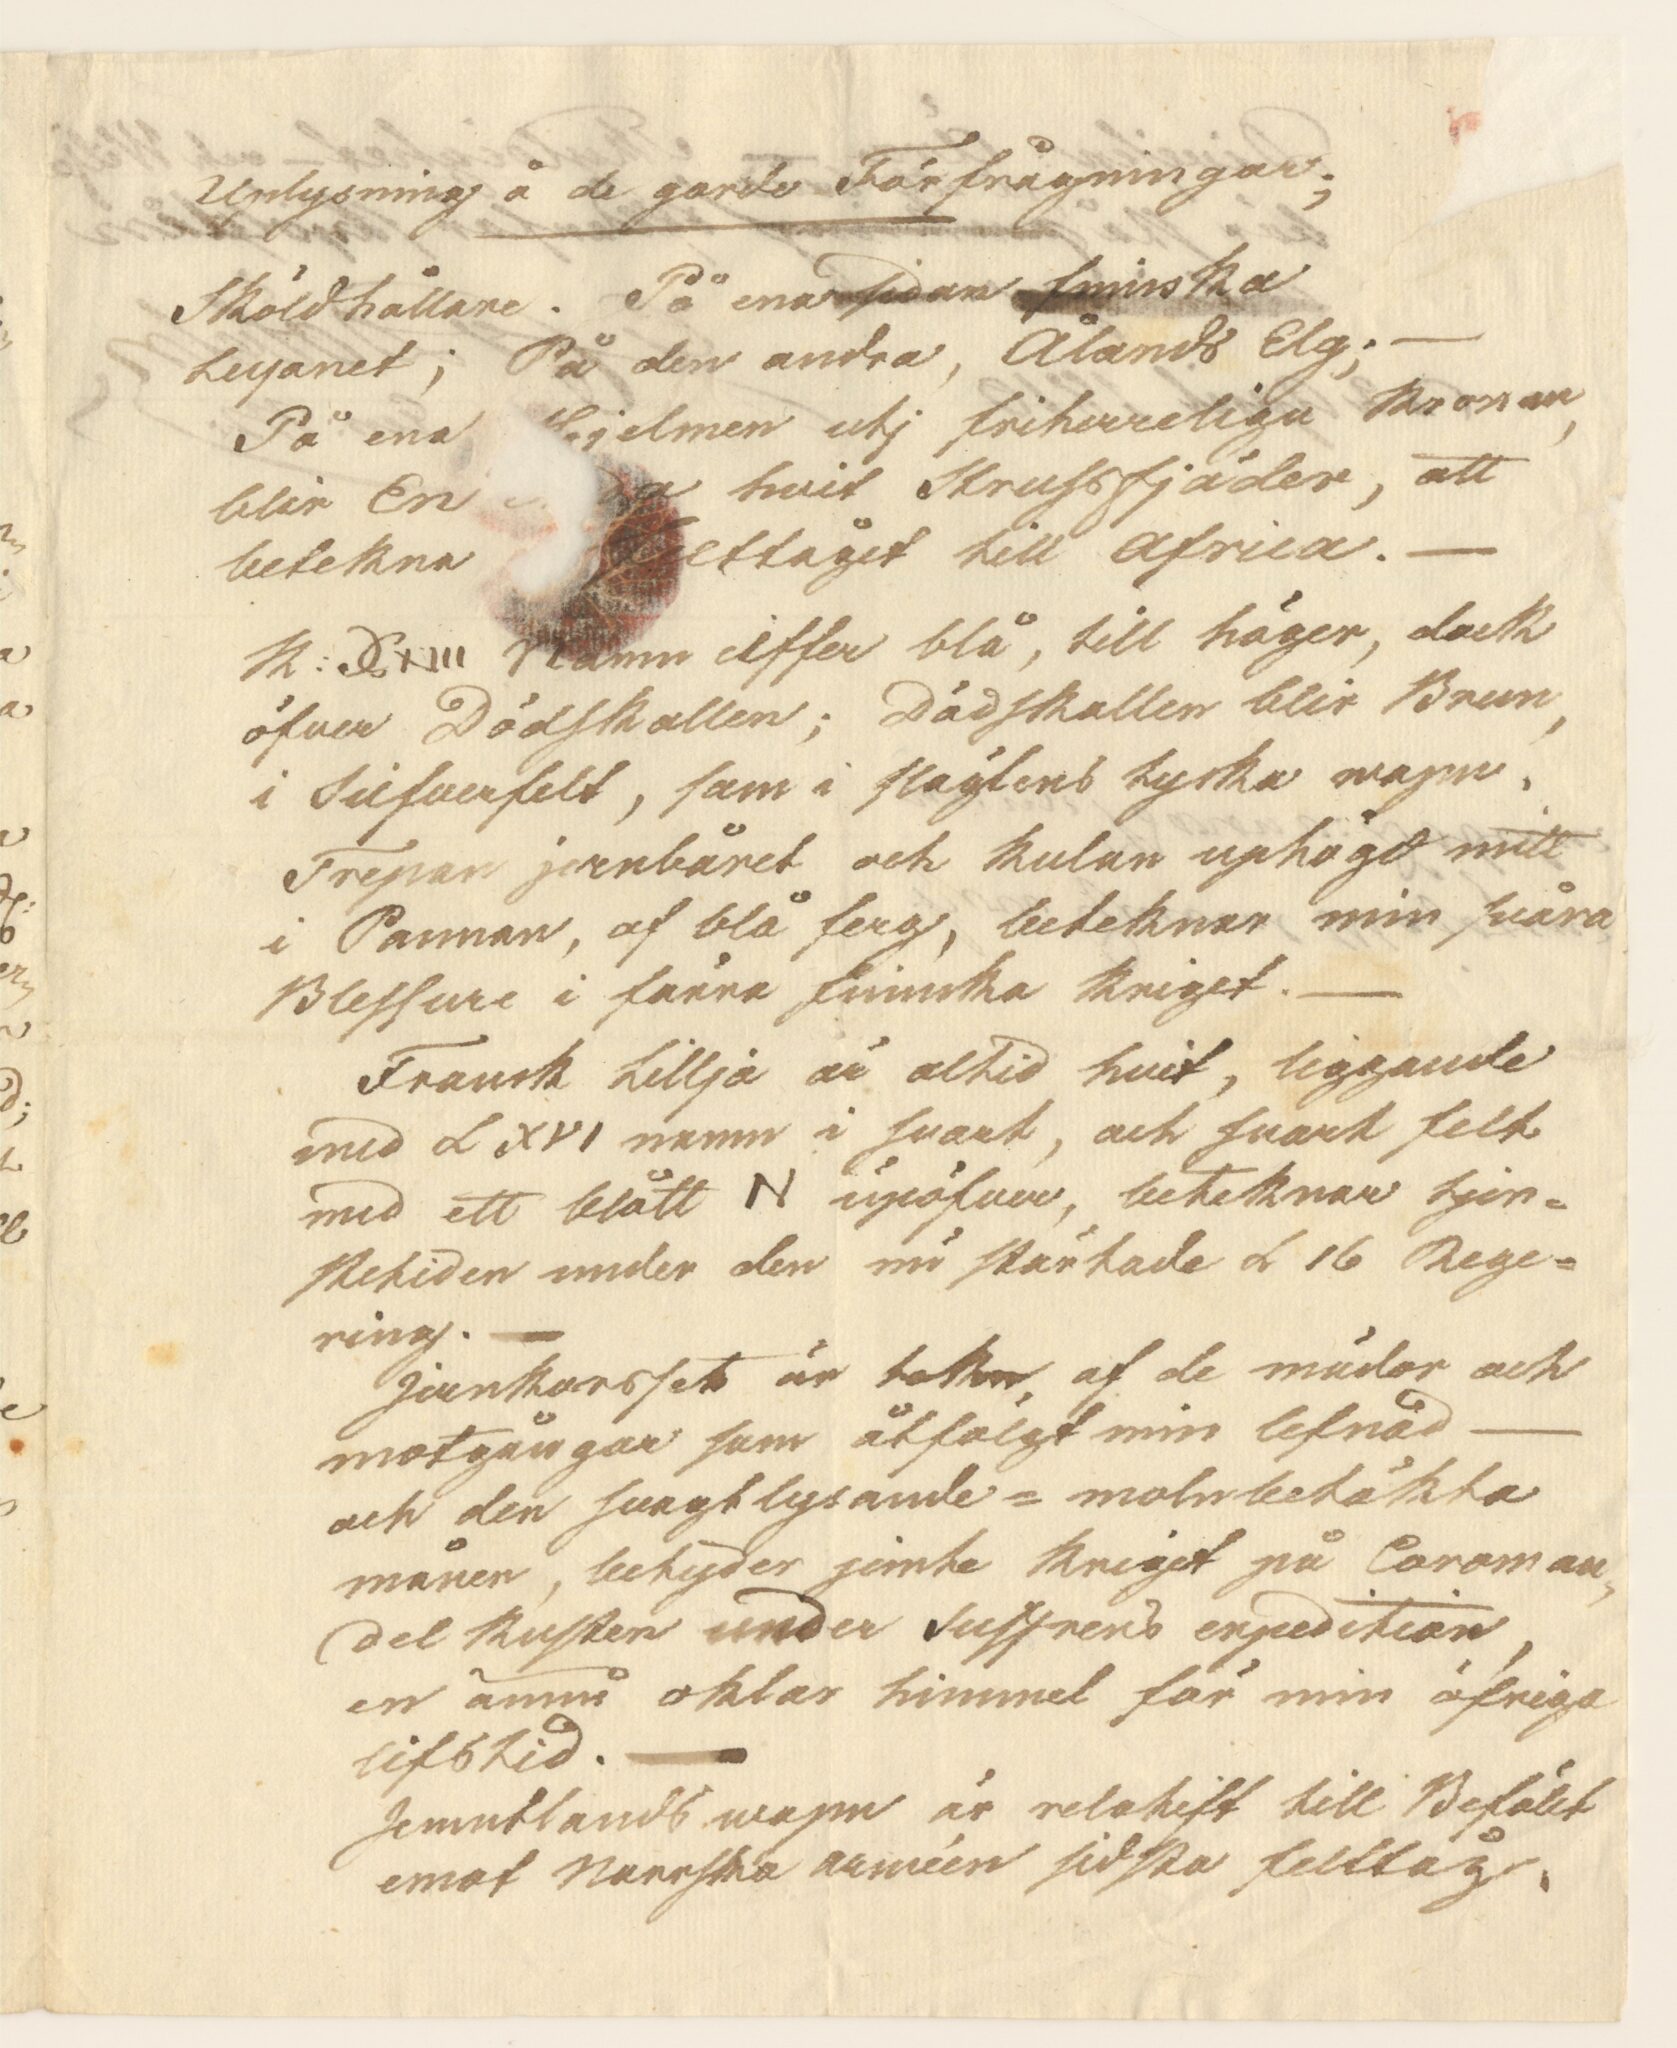 Uplysning å de gorde Förfrågningar;
Sköldhållare. På ena sidan finska
Leyonet; På den andra, Ålands Elg; —
På ena Hjelmen utj friherreliga Kronan,
blir En hvit Strussfjäder, att
betekna elttåget till Africa. —
K: XIII Namn ciffer blå, till höger, dock
öfver Dödskallen; Dödskallen blir Brun,
i Silfverfelt, som i släg̈tens tyska wapn.
Trepan jernbåret och Kulan uphögd mitt
i Pannan, af blå ferg, beteknar min svåra
Blessure i förra finnska Kriget. —
Fransk Lillja är altid hvit, liggande
med L XVI namn i svart, och svart felt
med ett blått N upöfver, beteknar tjen=
stetiden under den nu störtade L 16 Rege=
ring. —
Jernkorsset är tekn, af de mödor och
motgångar som åtföljgt min lefnad —
och den svagt lysande = molnbetäkta
månen, betyder jemte Kriget på Coroman=
del Kusten under Suffrens expedition,
en ännu oklar himmel för min öfriga
lifstid. —
Jemtlands wapn är relatift till Befälet
emot Norrska arméen sidsta felttåg.